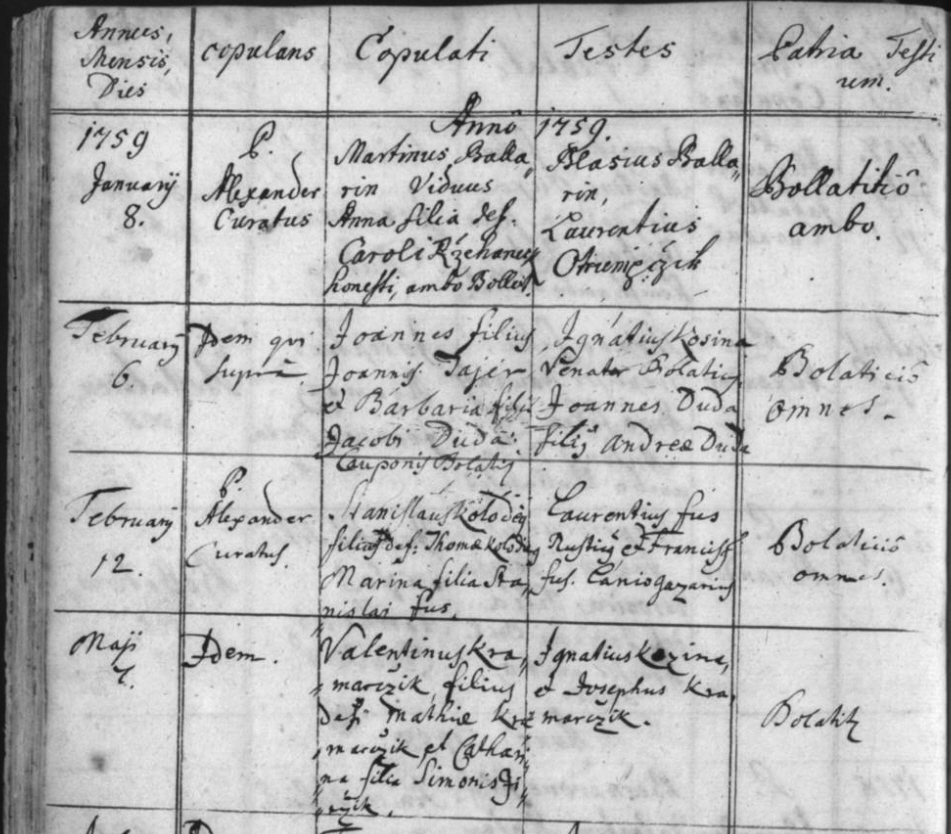 Annus, Mensis, Dies
copulans
Copulati
Testes
Patria Testi
um.
Anno 1759.
1759
Januarÿ
8.
P.
Alexander
Curatus
Martinus Balla„
rin Viduus
Anna filia def.
Caroli
honesti, ambo
Blasius Balla„
rin,
Laurentius
Bollatitiô
ambo.
Februarÿ
6.
Idem qui
supra.
Joannes filius
Joannis Tajer
et Barbara filia
Jacobi Duda
Cauponis Bolatij
Ignatius Kosina
Venator
Joannes Duda
filiÿ Andreæ Duda
Bolaticiô
omnes.
Februarÿ
12.
P.
Alexander
Curatus.
Stanislaus Kolodeÿ
filius def: Thomæ
Marina filia Sta„
nislai fus.
Laurentius fus
et
fus. Canio
Bolaticiô
omnes.
Maji
Idem.
Valentinus Kra„
„marczik filius
def: Mathiæ Kra
„marczik et Cathari
„na filia Simonis
Ignatius Kozina,
et Josephus Kra„
marczik.
Bolatitz